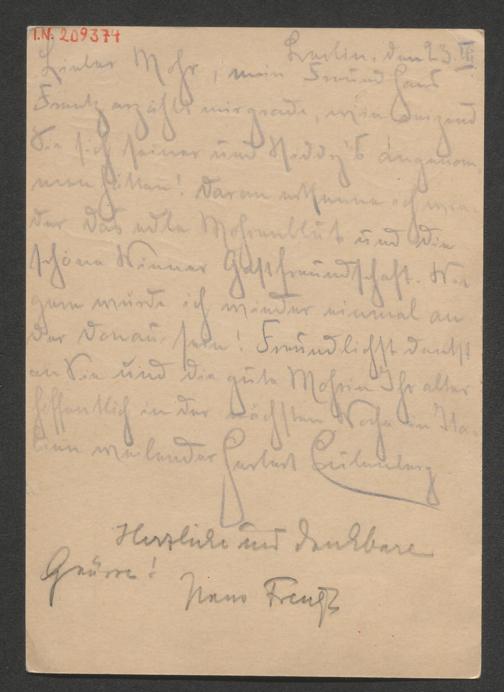 I.N. 209374
Berlin, den 23. III
Lieber Mohr, mein Freund Hans
Frentz erzählte mir grade, wie reizend
Sie sich seiner und Hiddy's angenom-
men hätten! Daran erkenne ich wie-
der das edle Mohrenblut und die
schöne Wiener Gastfreundschaft. Wie
gern würde ich wieder einmal an
der Donau sein! Freundlichst denkt
an Sie und die gute Mohrin Ihr alter
hoffentlich in der nächsten Woche in Ita-
lien weilender Herbert Eulenberg
Herzliche und dankbare
Grüsse!
Hans Frentz